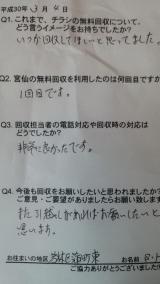 平成30年 3月 4日
Q1.これまで、チラシの無料回収について、
どう言うイメージをお持ちでしたか?
いつか回収してほしいと思ってました。
Q2.宮仙の無料回収を利用したのは何回目ですか?
1回目です。
Q3.回収担当者の電話対応や回収時の対応は
どうでしたか?
非常に良かったです。
Q4.今後も回収をお願いしたいと思われましたか?
ご意見・ご要望がありましたらお願い致します
また引越しがあればお願いしたいと
思います。
お住まいの地区
お名前
ご協力ありがとうございました!